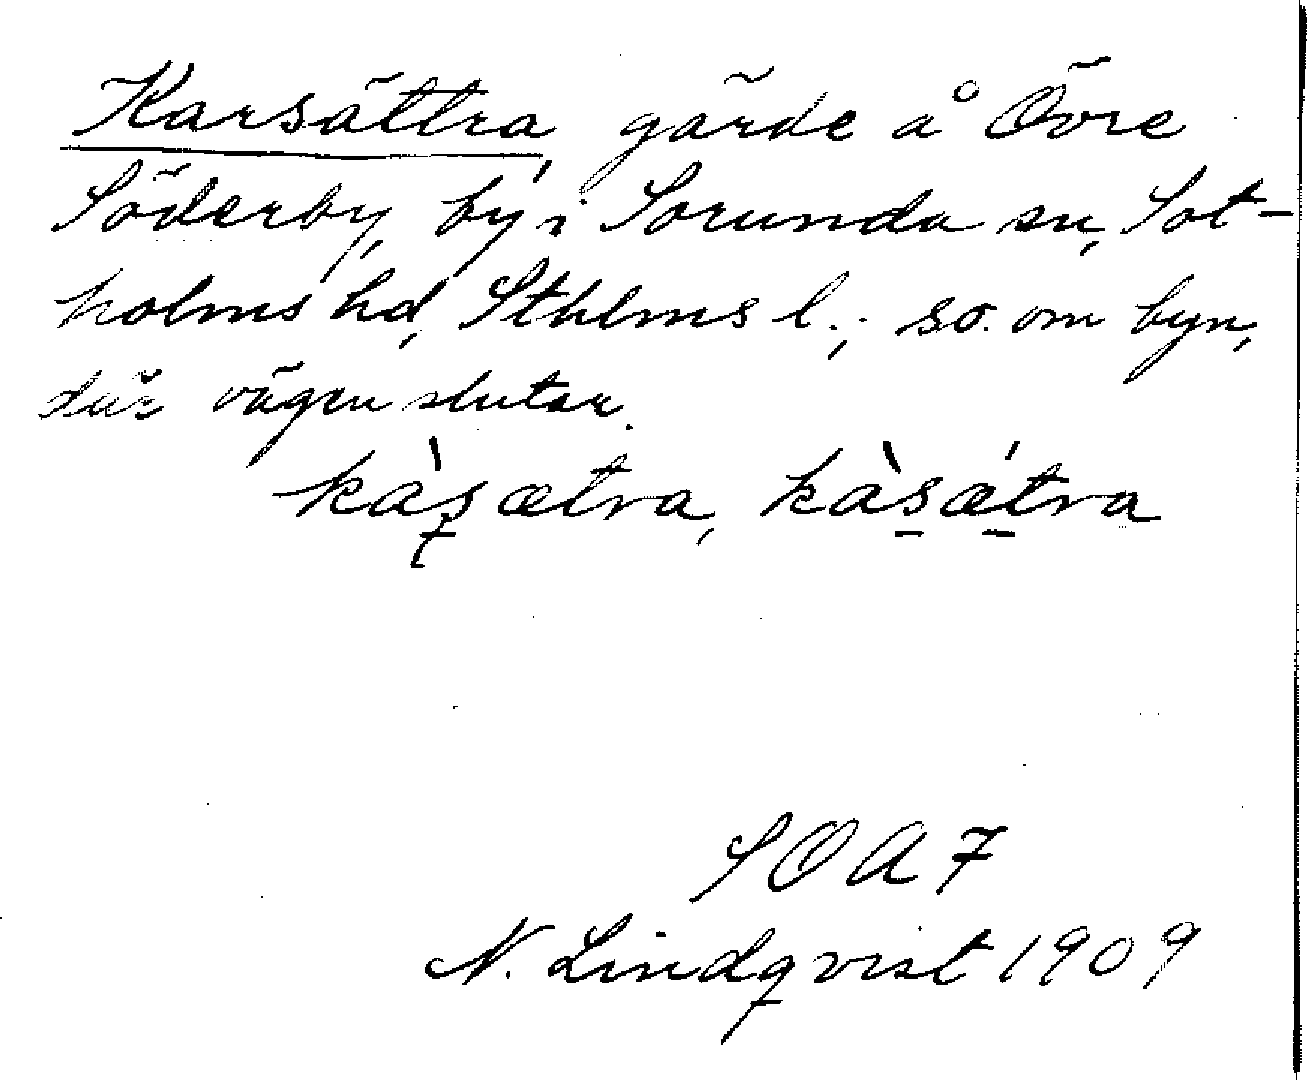 Karsättra, gärde å Övre
Söderby, by i Sorunda sn, Sot-
holms hd, Sthlms l.; so. om byn,
där vägen slutar.
kàʂætra, kàsǽtra
SOA 7
N. Lindqvist 1909